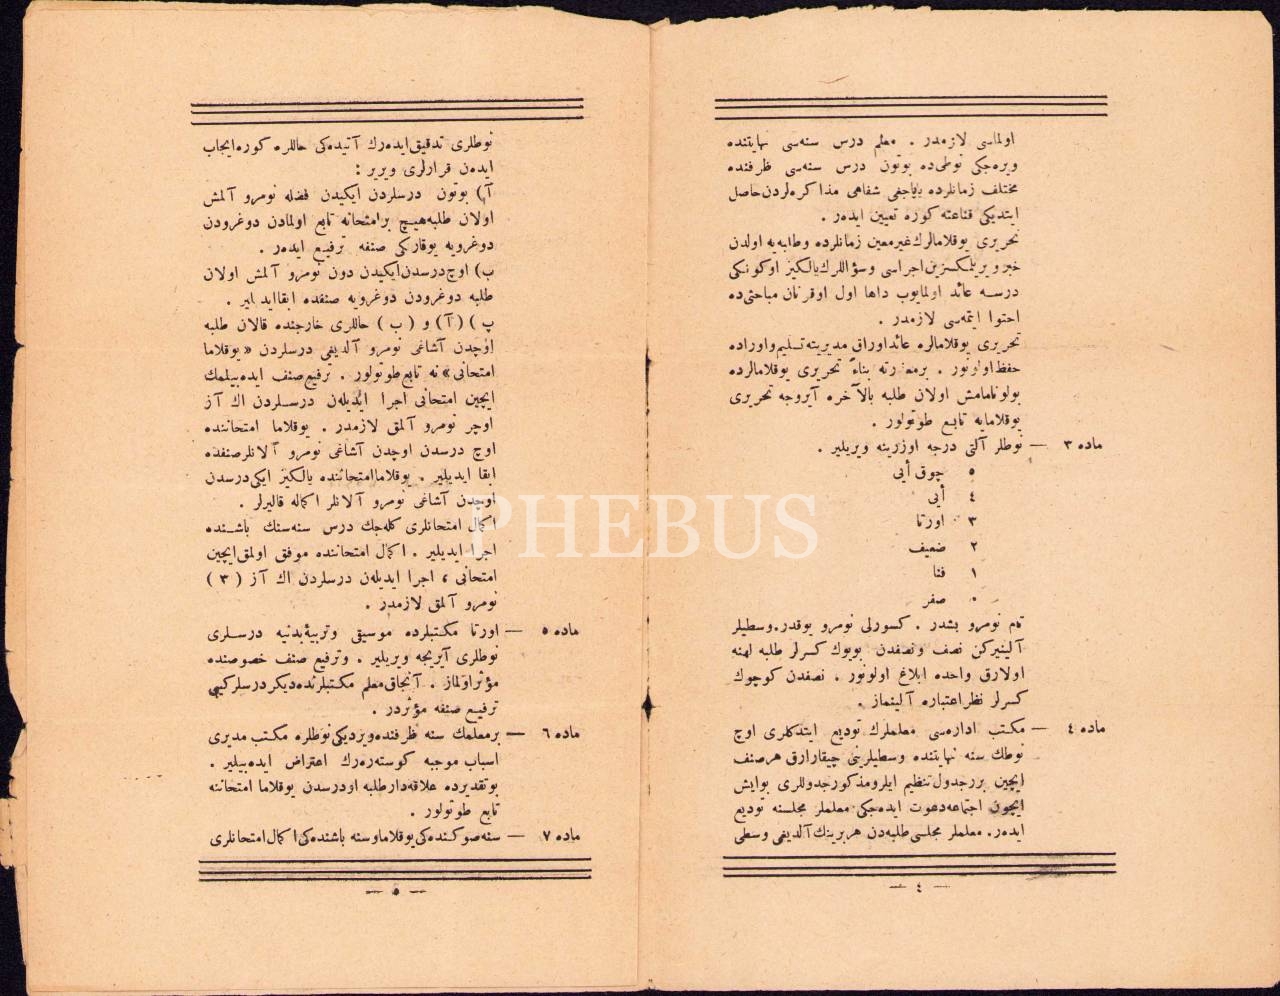 اولماسی لازمدر . معلم درس سنه‌سی نهایتنده
ویره‌جکی نوطی‌ده بوتون درس سنه‌سی ظرفنده
مختلف زمانلرده یاپاجغی شفاهی مذاکره‌لردن حاصل
ایتدیکی قناعته کوره تعیین ایده‌ر .
تحریری یوقلامالرك غیرمعین زمانلرده وطلبه‌یه اولدن
خبر ویریلمکسزین اجراسی وسؤاللرك یالکیز او کونکی
درسه عائد اولمایوب داها اول اوقونان مباحثی‌ده
احتوا ایتمه‌سی لازمدر .
تحریری یوقلامالره عائد اوراق مدیریته تسلیم واوراده
حفظ اولونور . برمعذرته بناءً تحریری یوقلامالرده
بولونامامش اولان طلبه بالآخره آیروجه تحریری
یوقلامایه تابع طوتولور .
ماده ٣ — نوطلر آلتی درجه اوزرینه ویریلیر .
٥ چوق أیی
٤ أیی
٣ اورتا
٢ ضعیف
١ فنا
٠ صفر
تام نومرو بشدر . کسورلی نومرو یوقدر . وسطیلر
آلینیرکن نصف ونصفدن بویوك کسرلر طلبه لهنه
اولارق واحده ابلاغ اولونور . نصفدن کوچوك
کسرلر نظر اعتباره آلینماز .
ماده ٤ — مکتب اداره‌سی معلملرك تودیع ایتدکلری اوچ
نوطك سنه نهایتنده وسطیلرینی چیقارارق هرصنف
ایچین برر جدول تنظیم ایلر ومذکور جدوللری بوایش
ایچون اجتماعه دعوت ایده‌جکی معلملر مجلسنه تودیع
ایده‌ر . معلملر مجلسی طلبه‌دن هربرینك آلدیغی وسطی
— ٤ —
نوطلری تدقیق ایده‌رك آتیده‌کی حاللره کوره ایجاب
ایده‌ن قرارلری ویریر :
آ) بوتون درسلردن ایکیدن فضله نومرو آلمش
اولان طلبه هیچ بر امتحانه تابع اولمادن دوغرودن
دوغرویه یوقارکی صنفه ترفیع ایده‌ر .
ب) اوچ درسدن ایکیدن دون نومرو آلمش اولان
طلبه دوغرودن دوغرویه صنفده ابقا ایدیلیر .
پ ) ( آ ) و ( ب ) حاللری خارجنده قالان طلبه
اوچدن آشاغی نومرو آلدیغی درسلردن « یوقلاما
امتحانی » نه تابع طوتولور . ترفیع صنف ایده‌بیلمك
ایچین امتحانی اجرا ایدیله‌ن درسلردن اك آز
اوچر نومرو آلمق لازمدر . یوقلاما امتحاننده
اوچ درسدن اوچدن آشاغی نومرو آلانلر صنفده
ابقا ایدیلیر . یوقلاما امتحاننده یالکیز ایکی درسدن
اوچدن آشاغی نومرو آلانلر اکماله قالیرلر .
اکمال امتحانلری کله‌جك درس سنه‌سنك باشنده
اجرا ایدیلیر . اکمال امتحاننده موفق اولمق ایچین
امتحانی ، اجرا ایدیله‌ن درسلردن اك آز ( ٣ )
نومرو آلمق لازمدر .
ماده ٥ — اورتا مکتبلرده موسیقی وتربیهٔ بدنیه درسلری
نوطلری آیریجه ویریلیر . وترفیع صنف خصوصنده
مؤثر اولماز . آنجاق معلم مکتبلرنده دیکر درسلر کبی
ترفیع صنفه مؤثردر .
ماده ٦ — برمعلمك سنه ظرفنده ویردیکی نوطلره مکتب مدیری
اسباب موجبه کوستره‌رك اعتراض ایده‌بیلیر .
بوتقدیرده علاقه‌دار طلبه او درسدن یوقلاما امتحاننه
تابع طوتولور .
ماده ٧ — سنه صوکنده‌کی یوقلاما وسنه باشنده‌کی اکمال امتحانلری
— ٥ —
PHEBUS